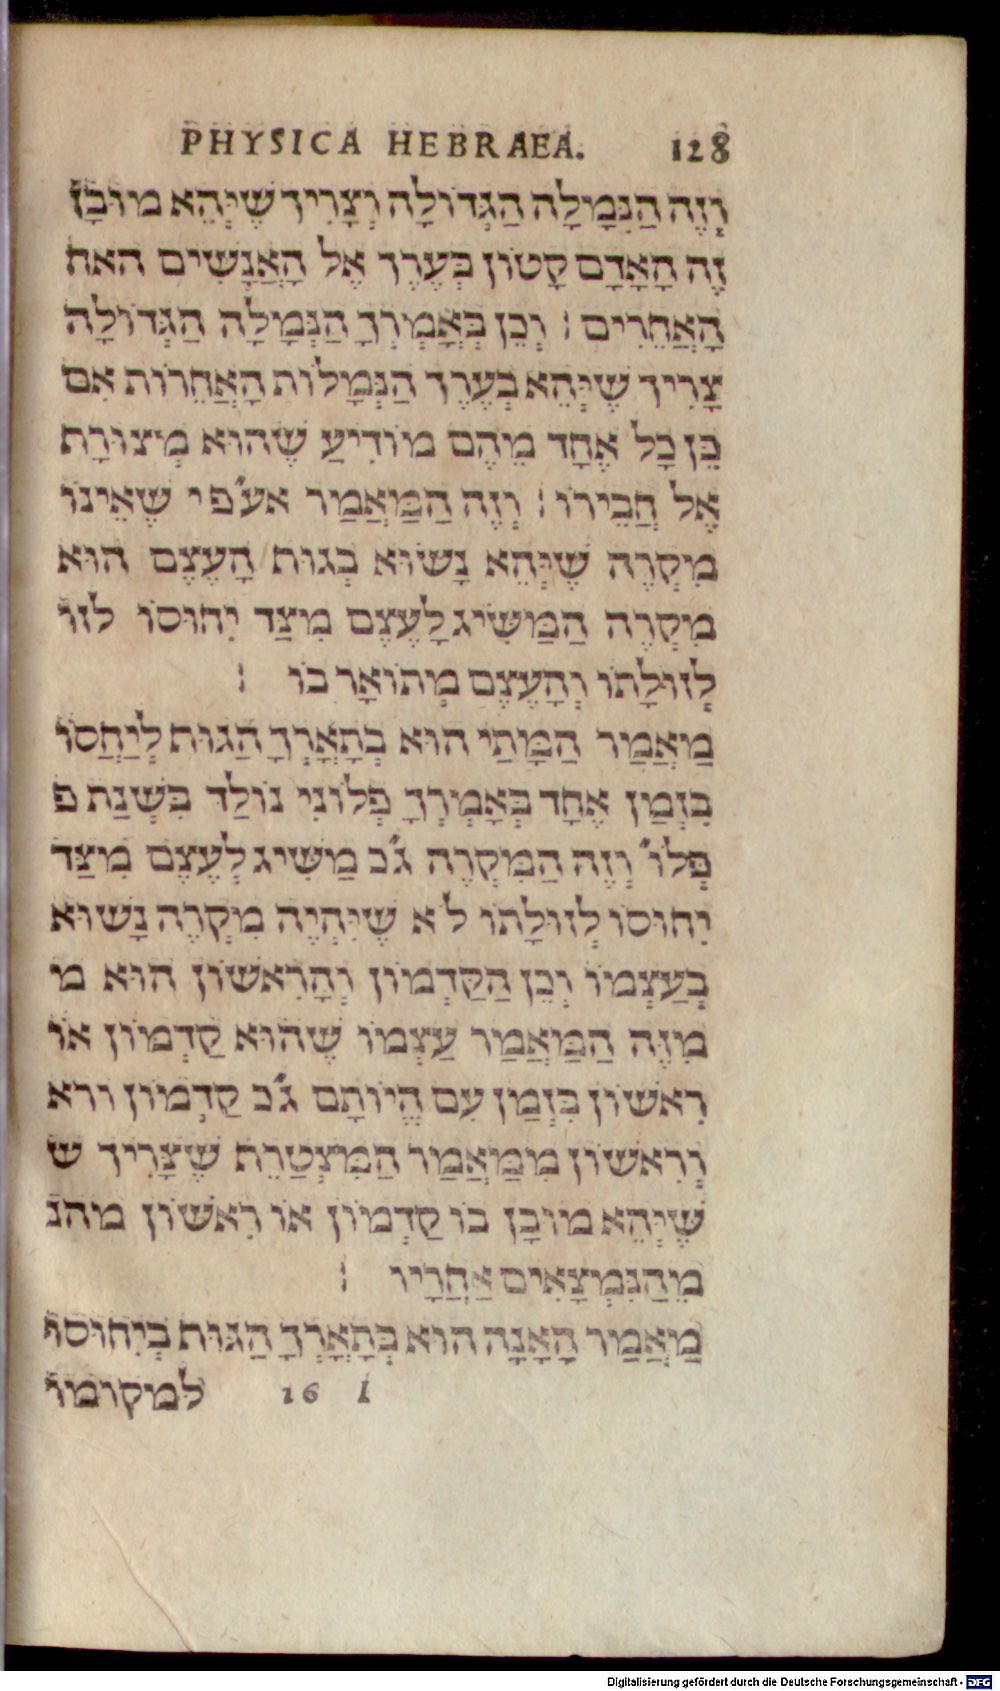 PHYSICA HEBRAEA. 128
וְזֶה הַנְּמָלָה הַגְּדוֹלָה וְצָרִיךְ שֶׁיְּהֵא מוּבָן
זֶה הָאָדָם קָטוֹן בְּעֶרֶךְ אֶל הָאֲנָשִׁים האח
הָאֲחֵרִים : וְכֵן בְּאָמְרְךָ הַנְּמָלָה הַגְּדוֹלָה
צָרִיךְ שֶׁיְּהֵא בְּעֶרֶךְ הַנְּמָלוֹת הָאֲחֵרוֹת אִם
כֵּן כָּל אֶחָד מֵהֶם מוֹדִיעַ שֶׁהוּא מְצוּרָת
אֶל חֲבֵירוֹ : וְזֶה הַמַּאֲמַר אע״פי שֶׁאֵינוֹ
מִקְרֶה שֶׁיְּהֵא נָשׂוּא בְּגוּת הָעֶצֶם הוּא
מִקְרֶה הַמַּשִּׂיג לָעֶצֶם מִצַּד יִחוּסוֹ לזו
לְזוּלָתוֹ וְהָעֶצֶם מְתוֹאָר בּוֹ :
מַאֲמַר הַמָּתַי הוּא בְּתָאֳרְךָ הַגּוּת לְיַחֲסוֹ
בִּזְמַן אֶחָד בְּאָמְרְךָ פְּלוֹנִי נוֹלַד בִּשְׁנַת פ
פְּלוֹ׳ וְזֶה הַמִּקְרֶה ג״כ מַשִּׂיג לְעֶצֶם מִצַּד
יִחוּסוֹ לְזוּלָתוֹ לֹא שֶׁיִּהְיֶה מִקְרֶה נָשׂוּא
בְּעַצְמוֹ וְכֵן הַקַּדְמוֹן וְהָרִאשׁוֹן הוּא מ
מִזֶּה הַמַּאֲמַר עַצְמוֹ שֶׁהוּא קַדְמוֹן אוֹ
רִאשׁוֹן בִּזְמַן עִם הֱיוֹתָם ג״כ קַדְמוֹן ורא
וְרִאשׁוֹן מִמַּאֲמַר הַמִּצְטָרֵת שֶׁצָּרִיךְ ש
שֶׁיְּהֵא מוּבָן בּוֹ קַדְמוֹן אוֹ רִאשׁוֹן מהנ
מֵהַנִּמְצָאִים אַחֲרָיו :
מַאֲמַר הָאָנָה הוּא בְּתָאֳרְךָ הַגּוּת בְּיִחוּסוֹ
16 I למקומו
Digitalisierung gefördert durch die Deutsche Forschungsgemeinschaft - DFG